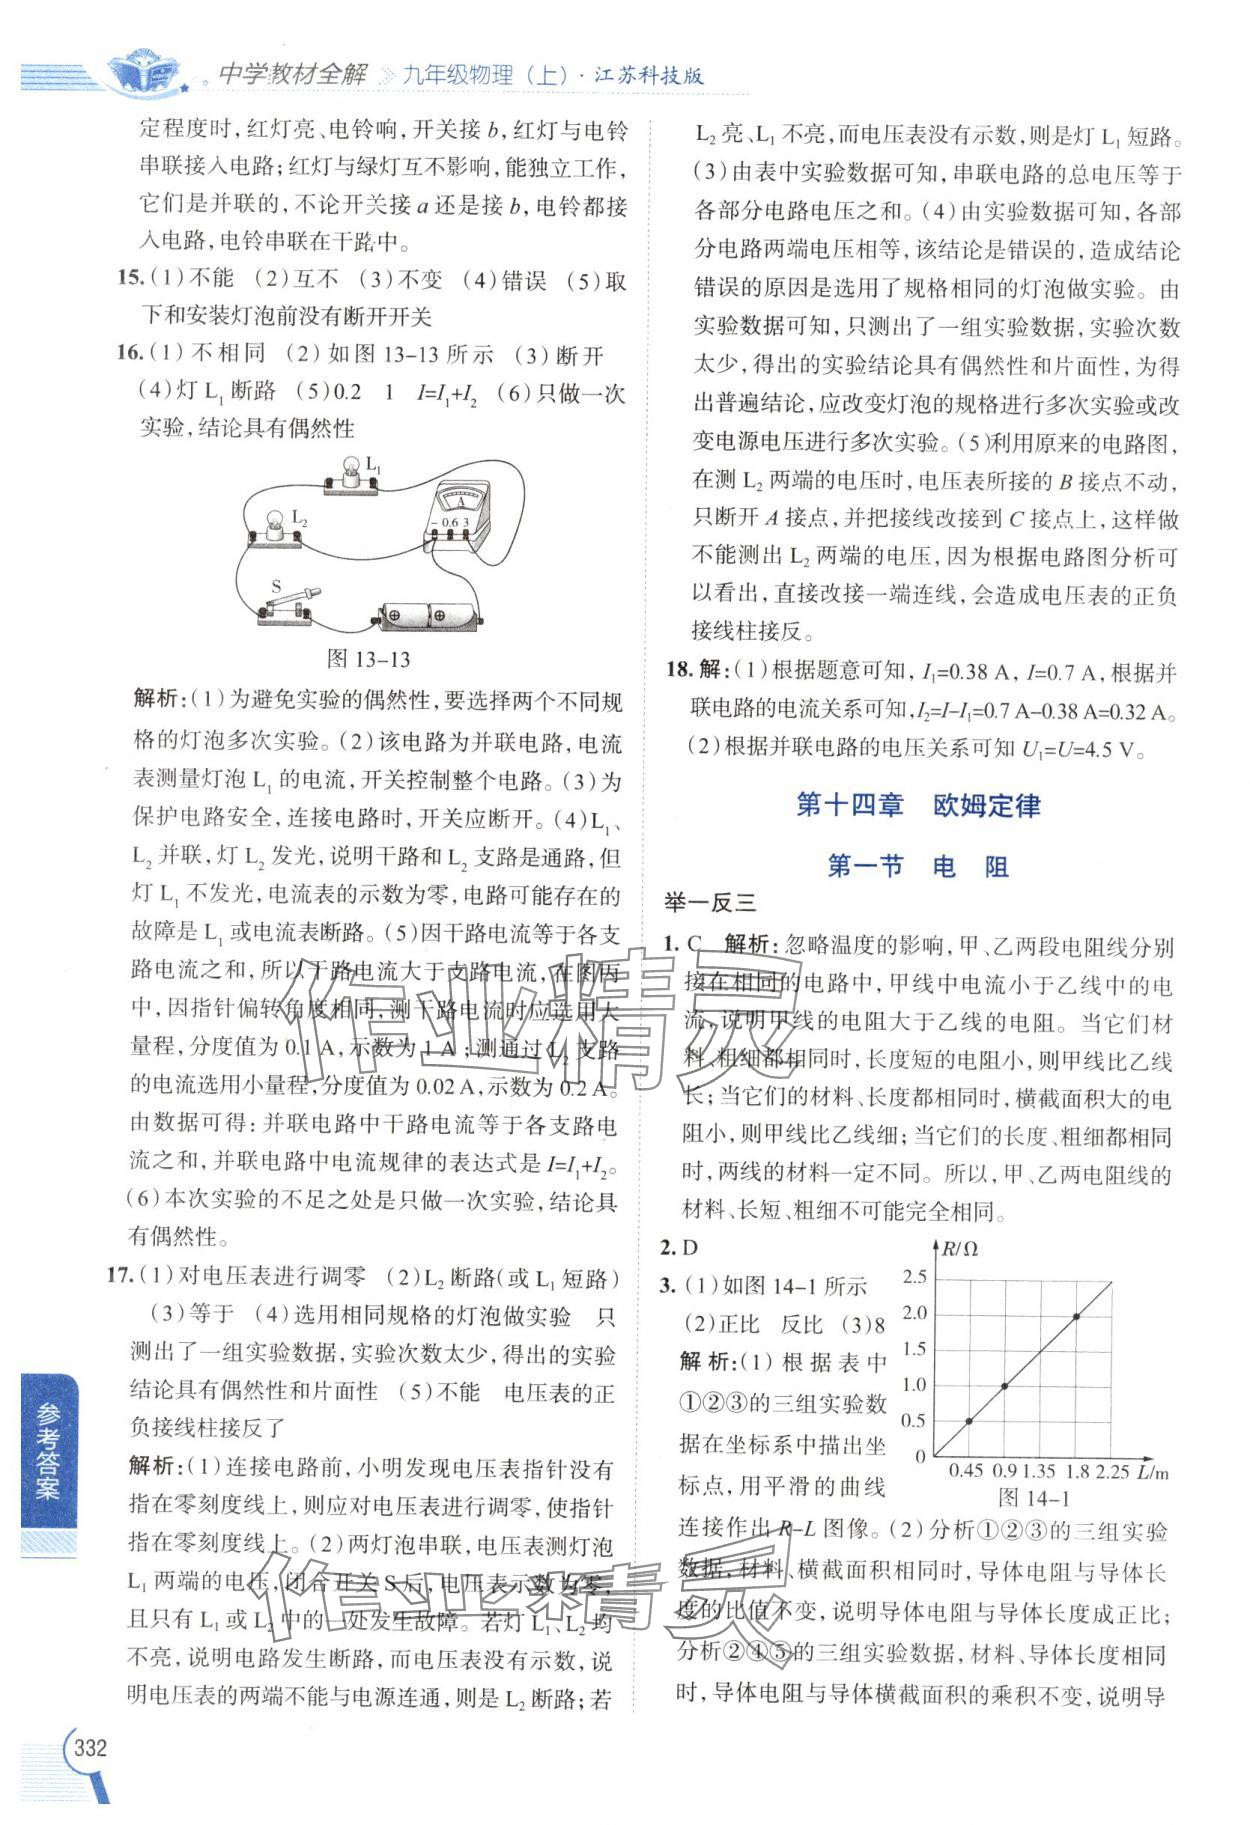 中学教材全解 九年级物理(上)·江苏科技版
定程度时,红灯亮、电铃响,开关接b,红灯与电铃
串联接入电路;红灯与绿灯互不影响,能独立工作,
它们是并联的,不论开关接a还是接b,电铃都接
入电路,电铃串联在干路中。
15.(1)不能 (2)互不 (3)不变 (4)错误 (5)取
下和安装灯泡前没有断开开关
16.(1)不相同 (2)如图13-13所示 (3)断开
(4)灯L₁断路 (5)0.2 1 I=I₁+I₂ (6)只做一次
实验,结论具有偶然性
L₁
L₂
A
- 0.6 3
S
图13-13
解析:(1)为避免实验的偶然性,要选择两个不同规
格的灯泡多次实验。(2)该电路为并联电路,电流
表测量灯泡L₁的电流,开关控制整个电路。(3)为
保护电路安全,连接电路时,开关应断开。(4)L₁、
L₂并联,灯L₂发光,说明干路和L₂支路是通路,但
灯L₁不发光,电流表的示数为零,电路可能存在的
故障是L₁或电流表断路。(5)因干路电流等于各支
路电流之和,所以干路电流大于支路电流,在图丙
中,因指针偏转角度相同,测干路电流时应选用大
量程,分度值为0.1 A,示数为1 A;测通过L₂支路
的电流选用小量程,分度值为0.02 A,示数为0.2 A。
由数据可得:并联电路中干路电流等于各支路电
流之和,并联电路中电流规律的表达式是I=I₁+I₂。
(6)本次实验的不足之处是只做一次实验,结论具
有偶然性。
17.(1)对电压表进行调零 (2)L₂断路(或L₁短路)
(3)等于 (4)选用相同规格的灯泡做实验 只
测出了一组实验数据,实验次数太少,得出的实验
结论具有偶然性和片面性 (5)不能 电压表的正
负接线柱接反了
解析:(1)连接电路前,小明发现电压表指针没有
指在零刻度线上,则应对电压表进行调零,使指针
指在零刻度线上。(2)两灯泡串联,电压表测灯泡
L₁两端的电压,闭合开关S后,电压表示数为零,
且只有L₁或L₂中的一处发生故障。若灯L₁、L₂均
不亮,说明电路发生断路,而电压表没有示数,说
明电压表的两端不能与电源连通,则是L₂断路;若
L₂亮、L₁不亮,而电压表没有示数,则是灯L₁短路。
(3)由表中实验数据可知,串联电路的总电压等于
各部分电路电压之和。(4)由实验数据可知,各部
分电路两端电压相等,该结论是错误的,造成结论
错误的原因是选用了规格相同的灯泡做实验。由
实验数据可知,只测出了一组实验数据,实验次数
太少,得出的实验结论具有偶然性和片面性,为得
出普遍结论,应改变灯泡的规格进行多次实验或改
变电源电压进行多次实验。(5)利用原来的电路图,
在测L₂两端的电压时,电压表所接的B接点不动,
只断开A接点,并把接线改接到C接点上,这样做
不能测出L₂两端的电压,因为根据电路图分析可
以看出,直接改接一端连线,会造成电压表的正负
接线柱接反。
18.解:(1)根据题意可知,I₁=0.38 A,I=0.7 A,根据并
联电路的电流关系可知,I₂=I-I₁=0.7 A-0.38 A=0.32 A。
(2)根据并联电路的电压关系可知U₁=U=4.5 V。
第十四章 欧姆定律
第一节 电阻
举一反三
1. C 解析:忽略温度的影响,甲、乙两段电阻线分别
接在相同的电路中,甲线中电流小于乙线中的电
流,说明甲线的电阻大于乙线的电阻。当它们材
料、粗细都相同时,长度短的电阻小,则甲线比乙线
长;当它们的材料、长度都相同时,横截面积大的电
阻小,则甲线比乙线细;当它们的长度、粗细都相同
时,两线的材料一定不同。所以,甲、乙两电阻线的
材料、长短、粗细不可能完全相同。
2. D
3.(1)如图14-1所示
(2)正比 反比 (3)8
解析:(1)根据表中
①②③的三组实验数
据在坐标系中描出坐
标点,用平滑的曲线
R/Ω
2.5
2.0
1.5
1.0
0.5
0
0.45 0.9 1.35 1.8 2.25 L/m
图14-1
连接作出R-L图像。(2)分析①②③的三组实验
数据,材料、横截面积相同时,导体电阻与导体长
度的比值不变,说明导体电阻与导体长度成正比;
分析②④⑤的三组实验数据,材料、导体长度相同
时,导体电阻与导体横截面积的乘积不变,说明导
参考答案
332
作业精灵
作业精灵